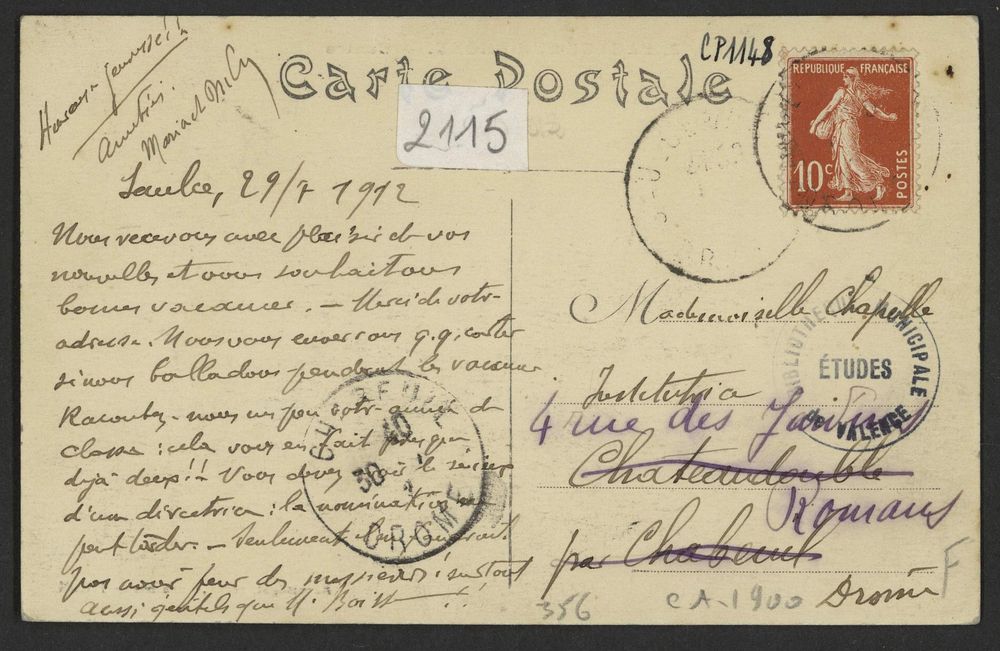 Carte Postale
CP1148
2115
RÉPUBLIQUE FRANÇAISE
10c
POSTES
29/7 1912
Nous recevons avec plaisir de vos
nouvelles et vous souhaitons
bonnes vacances. — Merci de votre
adresse. Nous vous enverrons q.q. cartes
si nous balladons pendant les vacances
Racontez-nous un peu votre année de
classe : cela vous en fait
déjà deux!! Vous devez avoir le sérieux
d'une directrice : la nomination
peut tarder. — Seulement
pas avoir peur des messieurs! surtout
aussi gentils que M.
Mademoiselle Chapelle
Institutrice
4 rue des
Chateaudouble
Romans
par Chabeuil
Drôme
BIBLIOTHEQUE MUNICIPALE
ÉTUDES
de VALENCE
CHABEUIL
30
DROME
356
CA-1900
F